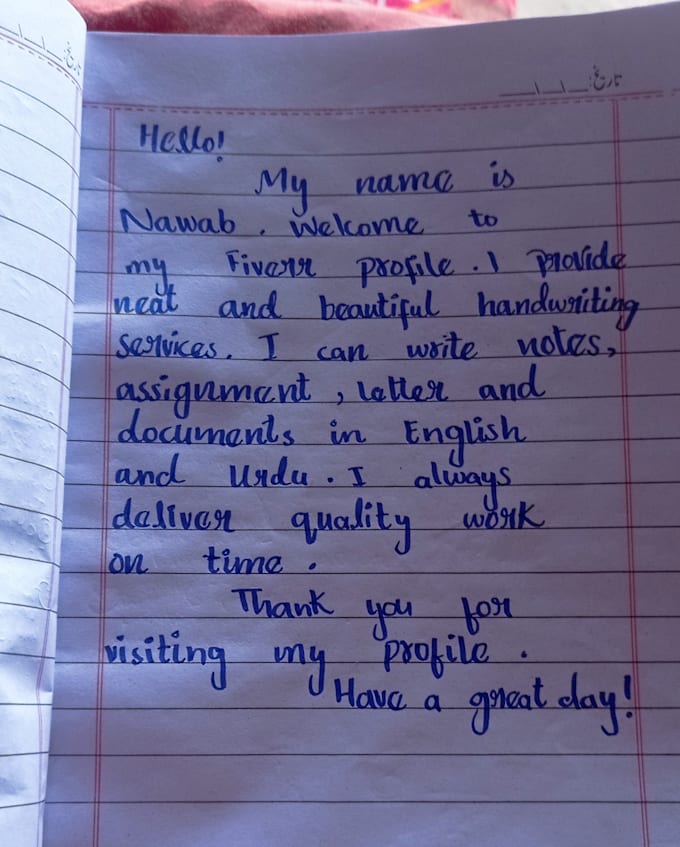 تاریخ:__/__/__
تاریخ:__/__/__
Hello!
My name is
Nawab. Welcome to
my Fiverr profile. I provide
neat and beautiful handwriting
services. I can write notes,
assignment, letter and
documents in English
and Urdu. I always
deliver quality work
on time.
Thank you for
visiting my profile.
Have a great day!